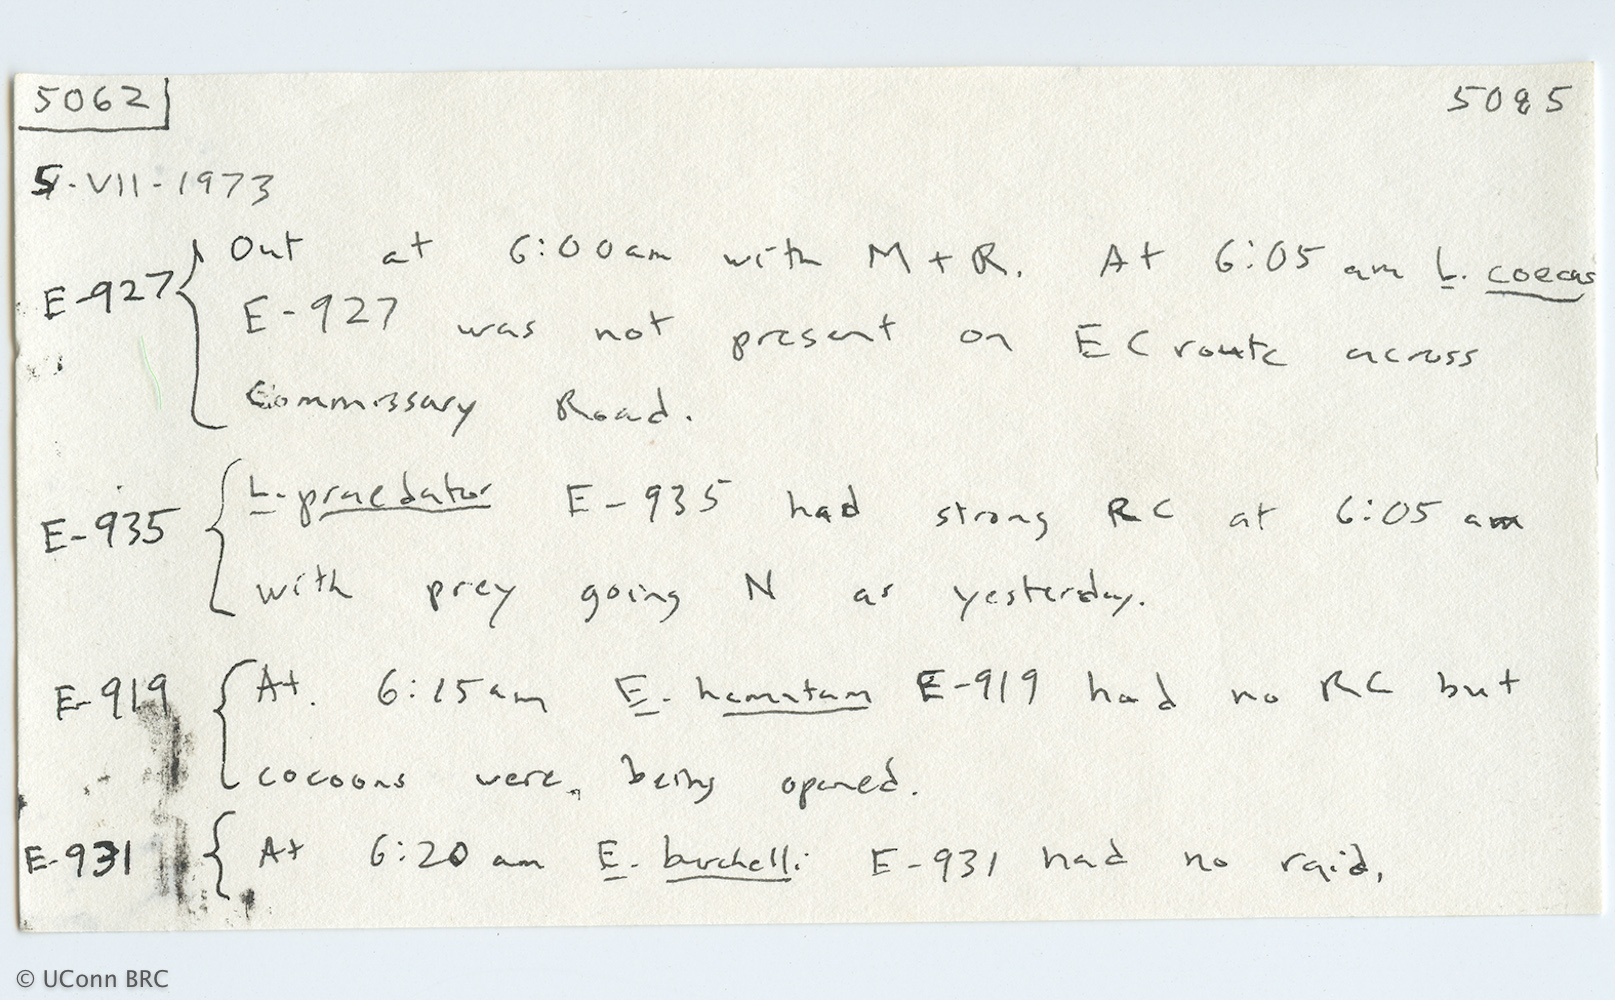 5062 5085
5-VII-1973
E-927 { Out at 6:00am with M + R. At 6:05 am L. coecus
E-927 was not present on EC route across
Commissary Road.
E-935 { L. praedator E-935 had strong RC at 6:05 am
with prey going N as yesterday.
E-919 { At. 6:15am E. hamatam E-919 had no RC but
cocoons were being opened.
E-931 { At 6:20 am E. burchelli E-931 had no raid.
© UConn BRC